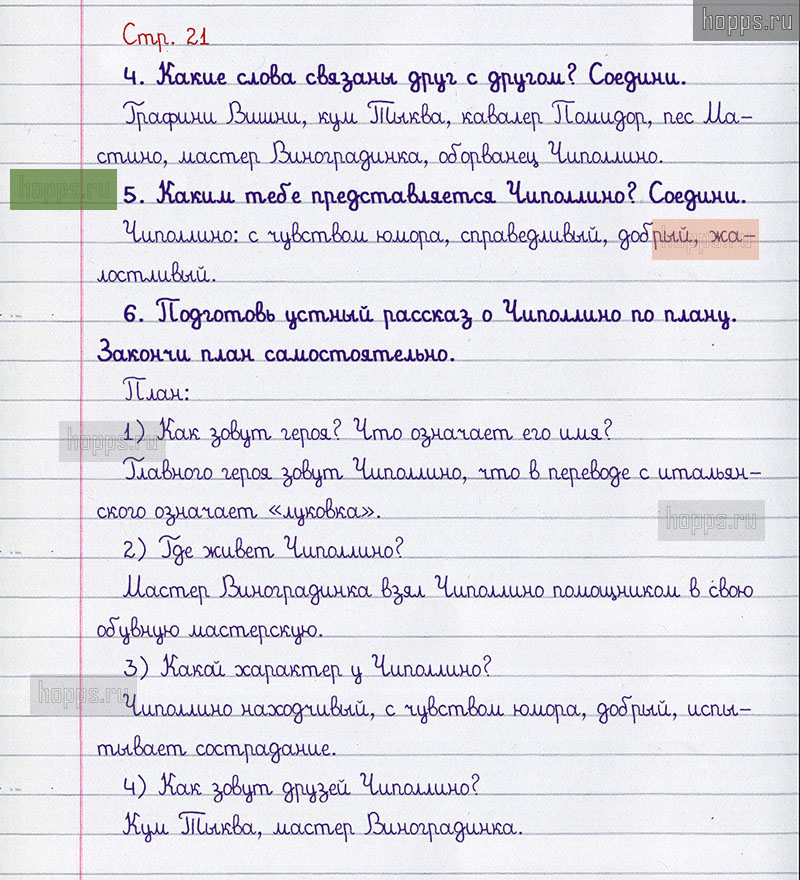 hopps.ru
Стр. 21
4. Какие слова связаны друг с другом? Соедини.
Графини Вишни, кум Тыква, кавалер Помидор, пес Ма-
стино, мастер Виноградинка, оборванец Чиполлино.
hopps.ru
5. Каким тебе представляется Чиполлино? Соедини.
Чиполлино: с чувством юмора, справедливый, добрый, жа-
hopps.ru
лостливый.
6. Подготовь устный рассказ о Чиполлино по плану.
Закончи план самостоятельно.
План:
hopps.ru
1) Как зовут героя? Что означает его имя?
Главного героя зовут Чиполлино, что в переводе с итальян-
ского означает «луковка».
hopps.ru
2) Где живет Чиполлино?
Мастер Виноградинка взял Чиполлино помощником в свою
обувную мастерскую.
3) Какой характер у Чиполлино?
hopps.ru
Чиполлино находчивый, с чувством юмора, добрый, испы-
тывает сострадание.
4) Как зовут друзей Чиполлино?
Кум Тыква, мастер Виноградинка.